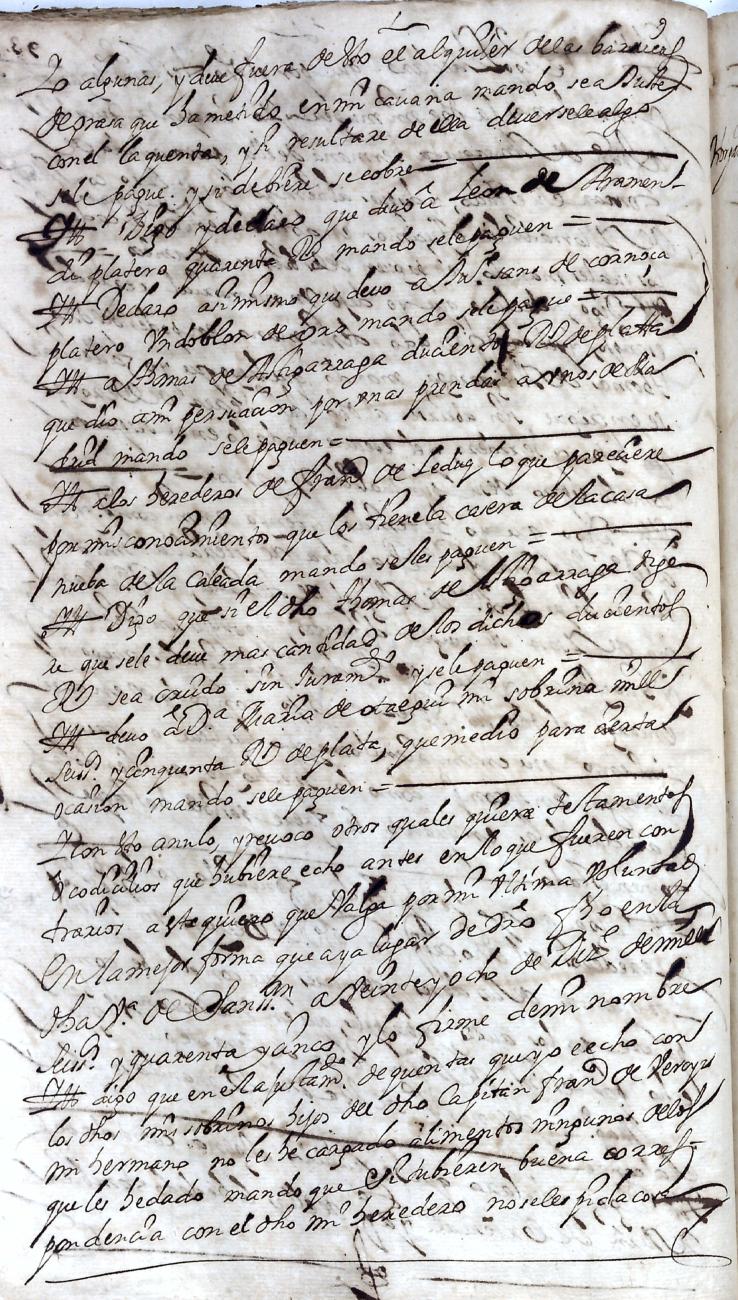 Lo algunas, y deve fuera de sto el alquiler de las barricas
de grasa que ha metido en mi cavaña mando se a Juste
con el la quenta, y si resultare de ella deversele algo
se le pague. y si debiere se cobre =
Itt Digo y declaro que devo a Leon de Aramen-
di platero quarenta Rs mando se le paguen =
Itt Declaro asi mismo que devo a Ju.o sans de cornoça
platero Un doblon de oro mando se le pague =
Itt a Thomas de Astigarraga ducientos Rs de platta
que dio a mi persuacion por unas prendas a unos de Ma
drid mando se le paguen =
Itt a los herederos de Fran.co de Leduy lo que pareciere
por mis conocimientos que los tiene la casera de la casa
nueba de la Calçada mando se les paguen =
Itt Digo que si el dho Thomas de Astigarraga dige
re que se le deve mas cantidad de los dichos ducientos
Rs sea creido sin Juram.to y se le paguen =
Itt devo a D.a Maria de otaegui mi sobrina mill
seis.s y cinquenta Rs de plata, que me dio para cierta
ocasion mando se le paguen =
I con sto anulo, y revoco otros quales quiera testamentos
O codicilios que hubiere echo antes en lo que fueren con
trarios a este quiero que Valga por mi Ultima Voluntad
En la mejor forma que aya lugar de dro fho en la
dha V.a de San ss.n a Veinte y ocho de Diz.e de mill
seis.s y quarenta y cinco y lo firme de mi nombre
Itt digo que en el ajustam.to de quentas que yo e echo con
los dhos mis sobrinos hijos del dho Capitan Fran.co de Veroyz
mi hermano no les he cargado alimentos ningunos de los
que les he dado mando que si tubieren buena corres=
pondencia con el dho mi heredero no se les pida cosa